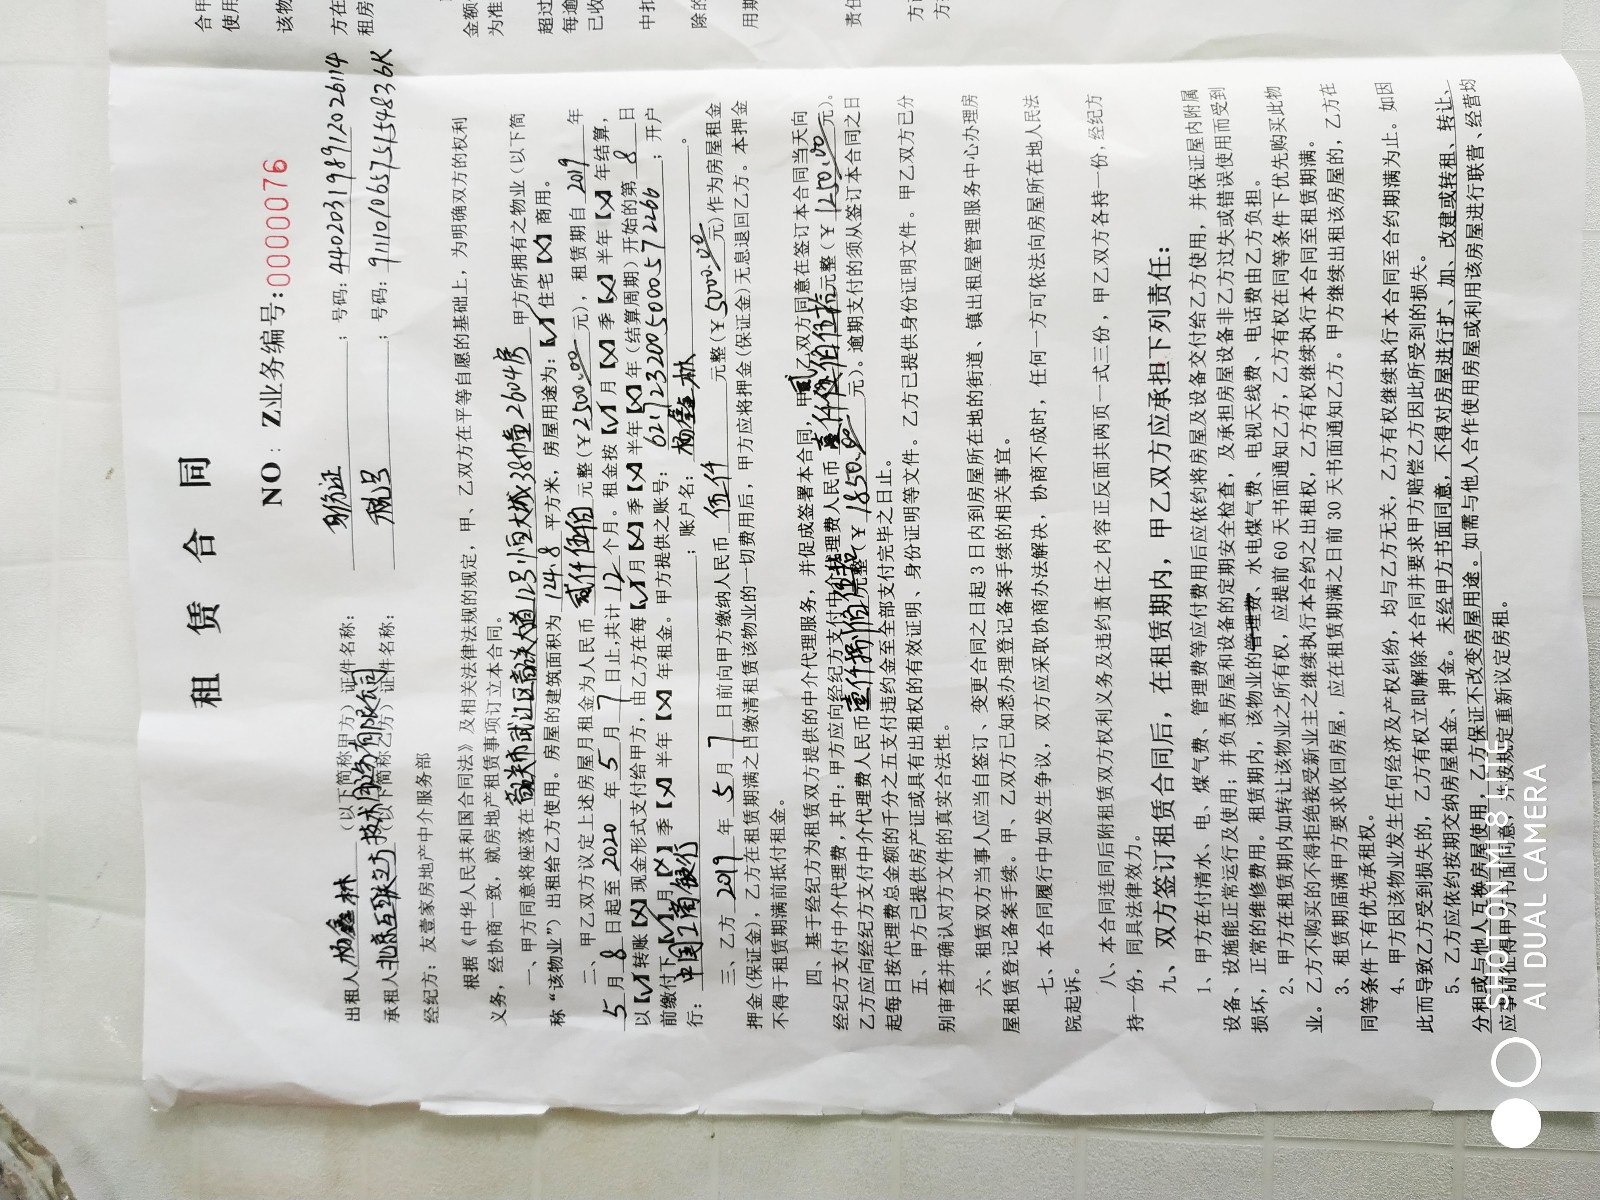 租 赁 合 同
NO：Z业务编号:0000076
出租人 杨鑫林 (以下简称甲方) 证件名称: 身份证 ；号码: 440203198912026114
承租人 北京互联之力技术服务有限公司 (以下简称乙方) 证件名称: 税号 ；号码: 91110106575154836K
经纪方: 友壹家房地产中介服务部
根据《中华人民共和国合同法》及相关法律法规的规定，甲、乙双方在平等自愿的基础上，为明确双方的权利
义务，经协商一致，就房地产租赁事项订立本合同。
一、甲方同意将座落在 韶关市武江区韶关大道12号恒大城38幢2604房 甲方所拥有之物业（以下简
称“该物业”）出租给乙方使用。房屋的建筑面积为 124.8 平方米，房屋用途为:【√】住宅【×】商用。
二、甲乙双方议定上述房屋月租金为人民币 贰仟伍佰 元整(￥2500.00元)，租赁期自 2019 年
5 月 8 日起至 2020 年 5 月 7 日止,共计 12 个月。租金按【√】月【×】季【×】半年【×】年结算，
以【√】转账【×】现金形式支付给甲方，由乙方在每【√】月【×】季【×】半年【×】年（结算周期）开始的第 8 日
前缴付下【√】月【×】季【×】半年【×】年租金。甲方提供之账号: 6217232005000572266 ；开户
行: 中国工商银行 ；账户名: 杨鑫林 。
三、乙方 2019 年 5 月 7 日前向甲方缴纳人民币 伍仟 元整(￥5000.00元)作为房屋租金
押金(保证金)，乙方在租赁期满之日缴清租赁该物业的一切费用后，甲方应将押金(保证金)无息退回乙方。本押金
不得于租赁期满前抵付租金。
四、基于经纪方为租赁双方提供的中介代理服务，并促成签署本合同，甲乙双方同意在签订本合同当天向
经纪方支付中介代理费，其中: 甲方应向经纪方支付中介代理费人民币 壹仟贰佰伍拾 元整(￥1250.00元)。
乙方应向经纪方支付中介代理费人民币 壹仟捌佰伍拾 元整(￥1850.00元)。逾期支付的须从签订本合同之日
起每日按代理费总金额的千分之五支付违约金至全部支付完毕之日止。
五、甲方已提供房产证或具有出租权的有效证明、身份证明等文件。乙方已提供身份证明文件。甲乙双方已分
别审查并确认对方文件的真实合法性。
六、租赁双方当事人应当自签订、变更合同之日起 3 日内到房屋所在地的街道、镇出租屋管理服务中心办理房
屋租赁登记备案手续。甲、乙双方已知悉办理登记备案手续的相关事宜。
七、本合同履行中如发生争议，双方应采取协商办法解决，协商不成时，任何一方可依法向房屋所在地人民法
院起诉。
八、本合同连同后附租赁双方权利义务及违约责任之内容正反面共两页一式三份，甲乙双方各持一份，经纪方
持一份，同具法律效力。
九、双方签订租赁合同后，在租赁期内，甲乙双方应承担下列责任:
1、甲方在付清水、电、煤气费、管理费等应付费用后应依约将房屋及设备交付给乙方使用，并保证屋内附属
设备、设施能正常运行及使用；并负责房屋和设备的定期安全检查，及承担房屋设备非乙方过失或错误使用而受到
损坏，正常的维修费用。租赁期内，该物业的管理费、水电煤气费、电视天线费、电话费由乙方负担。
2、甲方在租赁期内如转让该物业之所有权，应提前 60 天书面通知乙方，乙方有权在同等条件下优先购买此物
业。乙方不购买的不得拒绝接受新业主之继续执行本合约之出租权，乙方有权继续执行本合同至租赁期满。
3、租赁期届满甲方要求收回房屋，应在租赁期满之日前 30 天书面通知乙方。甲方继续出租该房屋的，乙方在
同等条件下有优先承租权。
4、甲方因该物业发生任何经济及产权纠纷，均与乙方无关，乙方有权继续执行本合同至合约期满为止。如因
此而导致乙方受到损失的，乙方有权立即解除本合同并要求甲方赔偿乙方因此所受到的损失。
5、乙方应依约按期交纳房屋租金、押金。未经甲方书面同意，不得对房屋进行扩、加、改建或转租、转让、
分租或与他人互换房屋使用，乙方保证不改变房屋用途。如需与他人合作使用房屋或利用该房屋进行联营、经营均
应事前征得甲方书面同意，并按规定重新议定房租。
SHOT ON MI 8 LITE
AI DUAL CAMERA